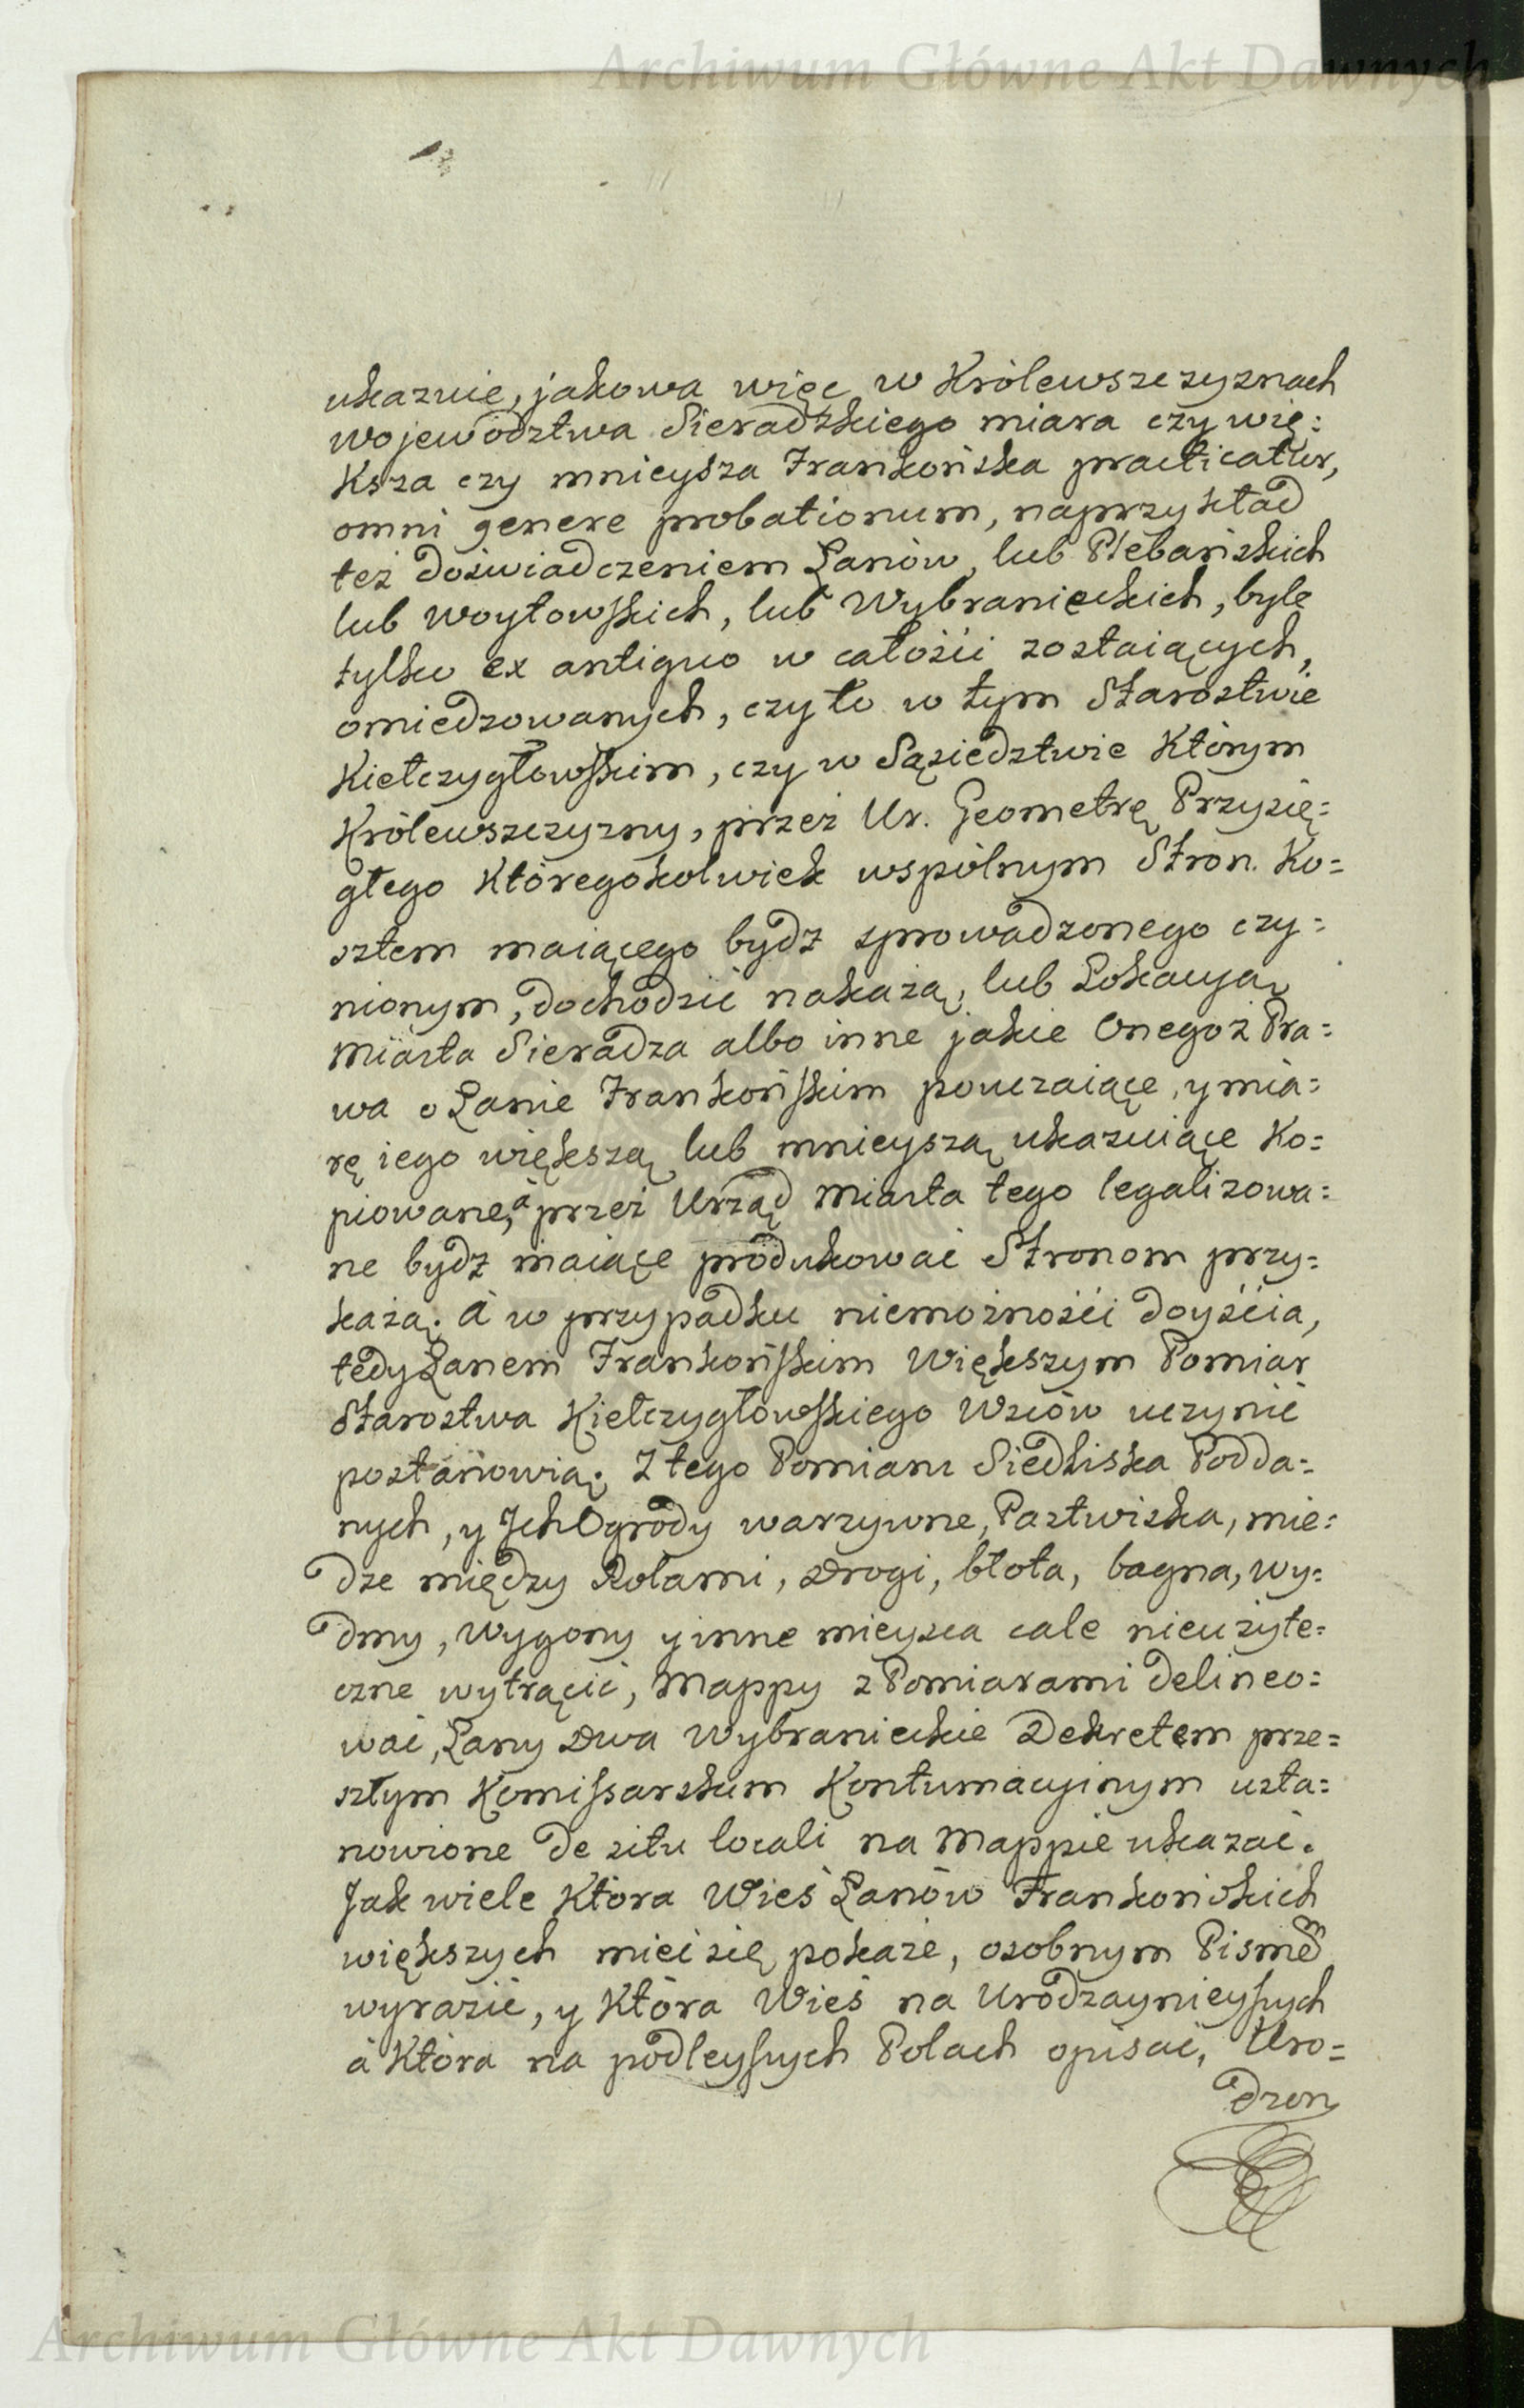 Archiwum Główne Akt Dawnych
ukazuie, jakowa więc w Królewszczyznach
wojewodztwa Sieradzkiego miara czy wię:
Ksza czy mnieysza Frankońska practicatur,
omni genere probationum, naprzykład
też doświadczeniem Łanów, lub Plebańskich
lub Woytowskich, lub Wybranieckich, byle
tylko ex antiquo w całości zostaiących,
omiedzowanych, czyto w tym Starostwie
Kiełczygłowskim, czy w Sąsiedztwie Którym
Królewszczyzny, przez Ur. Geometrę Przysię:
głego Któregokolwiek wspólnym Stron. Ko=
sztem maiącego bydź sprowadzonego czy:
nionym, dochodzić nakażą, lub Lokacyą
Miasta Sieradza albo inne jakie Onegoż Pra=
wa o Łanie Frankońskim pouczaiące, y mia:
rę iego większą lub mnieyszą ukazuiące Ko=
piowane, à przez Urząd Miasta tego legalizowa=
ne bydź maiące produkować Stronom przy:
każą. à w przypadku niemożności doyścia,
tedy Łanem Frankońskim Większym Pomiar
Starostwa Kiełczygłowskiego Wsiów uczynić
postanowią. Z tego Pomiaru Siedliska Podda:
nych, y Jch Ogrody warzywne, Pastwiska, mie:
dze między Rolami, Drogi, błota, bagna, wy:
dmy, Wygony y inne mieysca cale nieużyte=
czne wytrącić, Mappy z Pomiarami delineo:
wać, Łany Dwa Wybranieckie Dekretem prze=
szłym Komissarskim Kontumacyinym usta:
nowione de situ locali na Mappie ukazać.
Jak wiele Która Wieś Łanów Frankońskich
większych mieć się pokaże, osobnym Pismem
wyrazić, y Która Wieś na Urodzaynieyszych
à Która na podleyszych Polach opisać, Uro=
dzon
Archiwum Główne Akt Dawnych